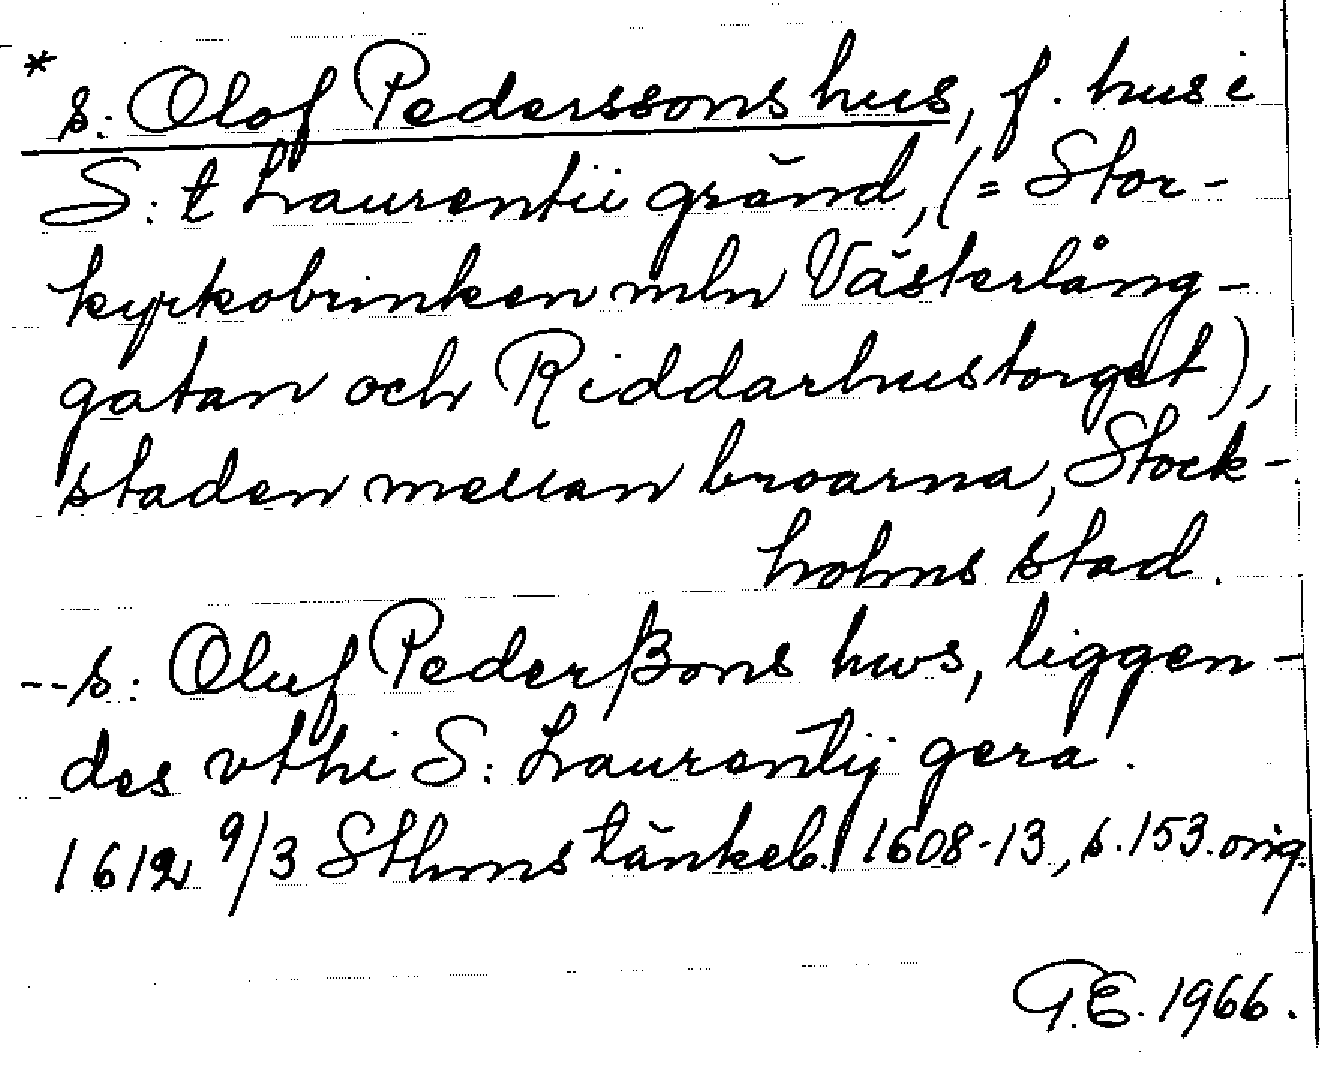 * s: Olof Pederssons hus, f. hus i
S:t Laurentii gränd, (= Stor-
kyrkobrinken mln Västerlång-
gatan och Riddarhustorget),
staden mellan broarna, Stock-
holms stad.
--s: Oluf Pederßons hws, liggen-
des vthi S: Laurentij gera.
1612 9/3 Sthms tänkeb. 1608-13, s. 153. orig.
G.E. 1966.